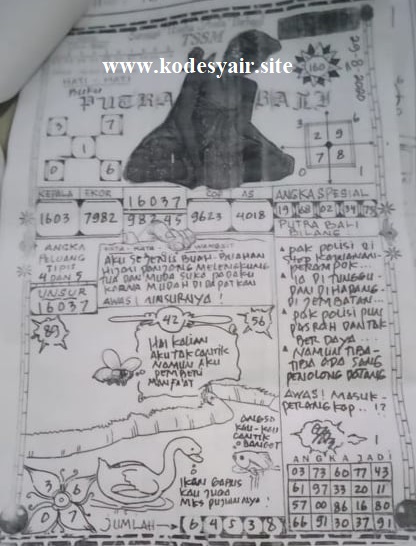 TSSM
www.kodesyair.site
160
29-8-2020
HATI - HATI
PUTRA BALI
3 7
1
0 6
3 6
2 9
7 8
KEPALA EKOR 16037 COP AS ANGKA SPESIAL
1603 7982 98245 9623 4018
ANGKA
PELUANG
TIPIS
4 DAN 5
UNSUR
16037
KATA - KATA
AKU SEJENIS BUAH-BUAHAN
HIJAU PANJANG MELENGKUNG
TUA DAN MUDA SUKA PADAKU
KARNA MUDAH DI DAPATKAN
AWAS! UNSURNYA!
PUTRA BALI
BILANG
PAK POLISI DI
STOP KAWANAN
PERAMPOK...
IA DI TUNGGU
DAN DI HADANG
DI JEMBATAN...
PAK POLISI PUN
PASRAH DAN TAK
BERDAYA...
NAMUN TIBA-
TIBA ADA SANG
PENOLONG DATANG
AWAS! MASUK
PERANGKAP...!?
89
42
56
HAI KALIAN
AKU TAK CANTIK
NAMUN AKU
PEMBERI
MANFAAT
ANGSO
KAU-KAU
CANTIK
BANGET
IKAN GAPUS
KAU JUGA
MKS PUJIANNYA!
3 6
0 7
JUMLAH 6 4 5 3 8
ANGKA JADI
03 73 60 77 43
61 97 33 20 11
57 00 86 16 80
66 91 30 37 91